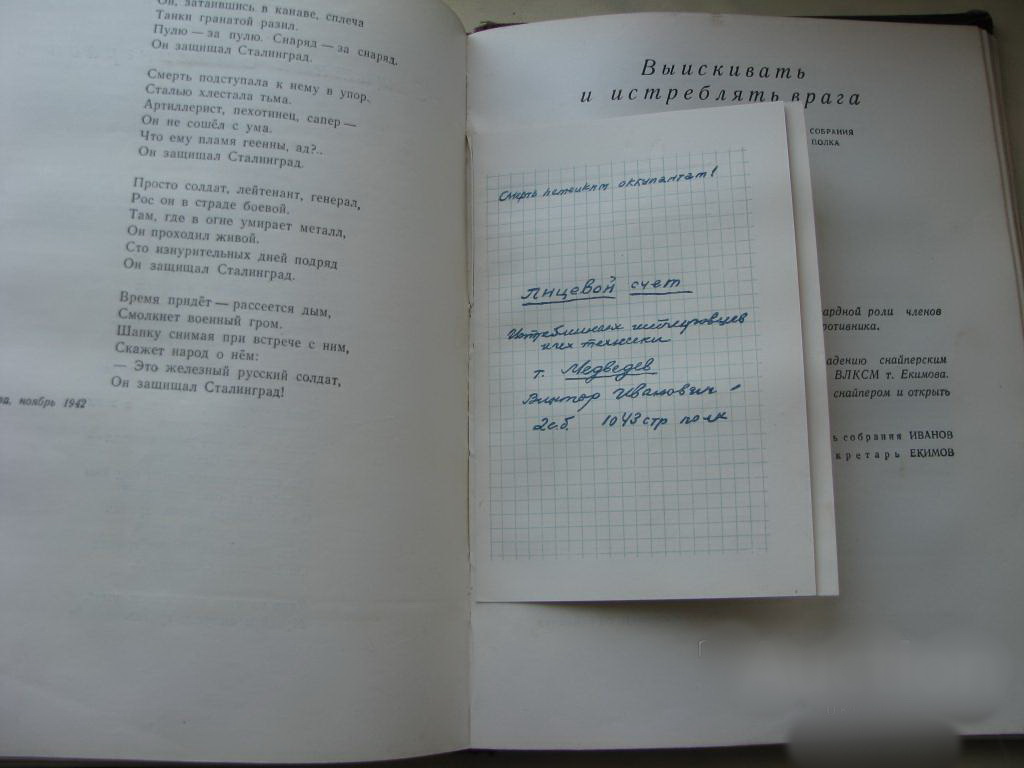 Он, затаившись в канаве, сплеча
Танки гранатой разил.
Пулю — за пулю. Снаряд — за снаряд.
Он защищал Сталинград.
Смерть подступала к нему в упор,
Сталью хлестала тьма.
Артиллерист, пехотинец, сапер —
Он не сошёл с ума.
Что ему пламя геенны, ад?..
Он защищал Сталинград.
Просто солдат, лейтенант, генерал,
Рос он в страде боевой.
Там, где в огне умирает металл,
Он проходил живой.
Сто изнурительных дней подряд
Он защищал Сталинград.
Время придёт — рассеется дым,
Смолкнет военный гром.
Шапку снимая при встрече с ним,
Скажет народ о нём:
— Это железный русский солдат,
Он защищал Сталинград!
ноябрь 1942
Выискивать
и истреблять врага
СОБРАНИЯ
ПОЛКА
Смерть оккупантам!
Лицевой счет
гитлеровцев
и их техники
т. Медведев
Виктор Иванович
2 с.б. 1043 стр полк
ардной роли членов
ротивника.
адению снайперским
ВЛКСМ т. Екимова.
снайпером и открыть
ь собрания ИВАНОВ
кретарь ЕКИМОВ